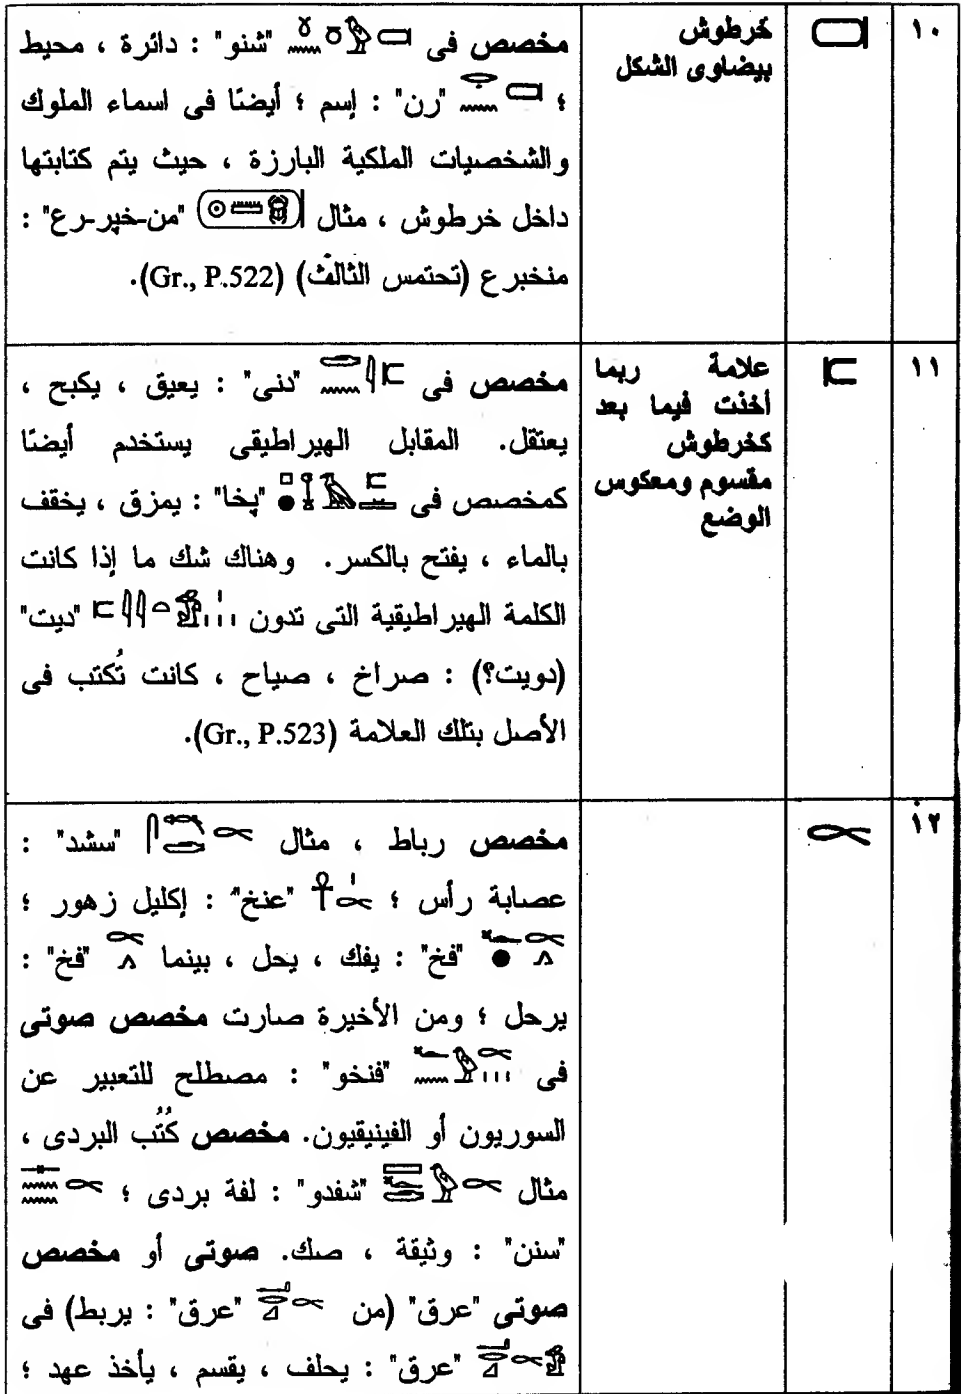 ١٠
خرطوش
بيضاوى الشكل
مخصص فى "شنو" : دائرة ، محيط
؛ "رن" : إسم ؛ أيضًا فى اسماء الملوك
والشخصيات الملكية البارزة ، حيث يتم كتابتها
داخل خرطوش ، مثال "من-خپر-رع" :
منخبرع (تحتمس الثالث) (Gr., P.522).
١١
علامة ربما
أخذت فيما بعد
كخرطوش
مقسوم ومعكوس
الوضع
مخصص فى "دنى" : يعيق ، يكبح ،
يعتقل. المقابل الهيراطيقى يستخدم أيضًا
كمخصص فى "پخا" : يمزق ، يخفف
بالماء ، يفتح بالكسر. وهناك شك ما إذا كانت
الكلمة الهيراطيقية التى تدون "ديت"
(دويت؟) : صراخ ، صياح ، كانت تُكتب فى
الأصل بتلك العلامة (Gr., P.523).
١٢
مخصص رباط ، مثال "سشد" :
عصابة رأس ؛ "عنخ" : إكليل زهور ؛
"فخ" : يفك ، يحل ، بينما "فخ" :
يرحل ؛ ومن الأخيرة صارت مخصص صوتى
فى "فنخو" : مصطلح للتعبير عن
السوريون أو الفينيقيون. مخصص كُتُب البردى ،
مثال "شفدو" : لفة بردى ؛
"سنن" : وثيقة ، صك. صوتى أو مخصص
صوتى "عرق" (من "عرق" : يربط) فى
"عرق" : يحلف ، يقسم ، يأخذ عهد ؛